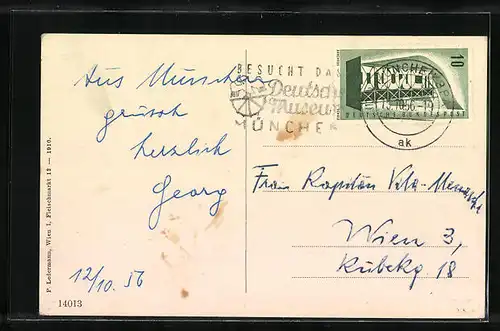 Aus München
grüsst
herzlich
Georg
12/10. 56
14013
F. Ledermann, Wien I, Fleischmarkt 12 — 1910.
BESUCHT DAS
Deutsche
Museum
MÜNCHEN
MÜNCHEN
10.56
ak
10
DEUTSCHE BUNDESPOST
Frau Kapitän
Wien 3,
18